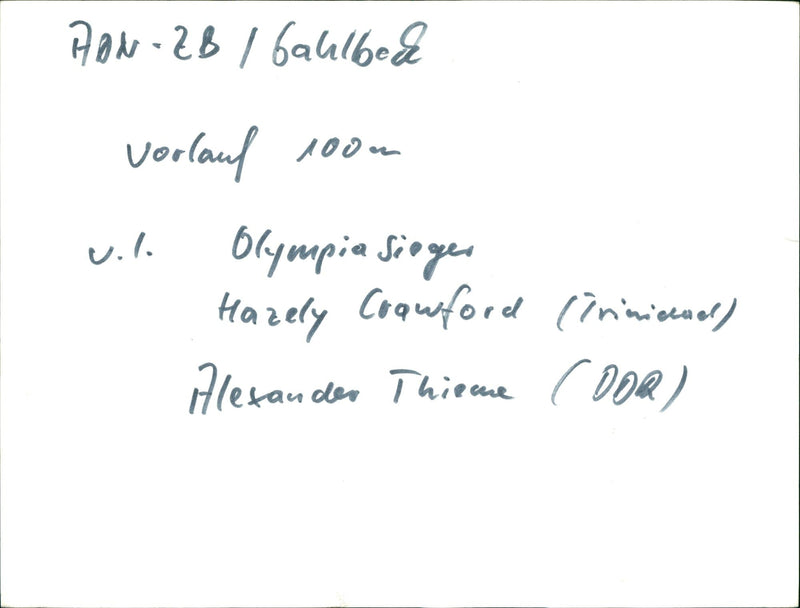 ADN-ZB / Gahlbeck
Vorlauf 100m
v.l. Olympiasieger
Hazely Crawford (Trinidad)
Alexander Thieme (DDR)